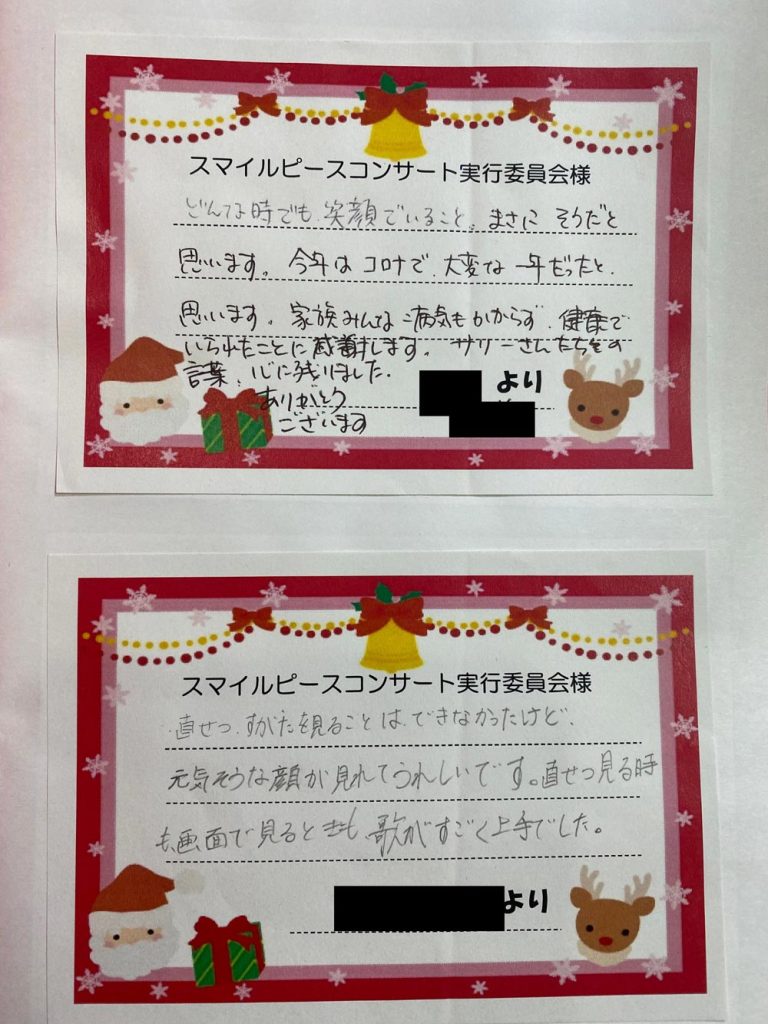 スマイルピースコンサート実行委員会様
どんな時でも、笑顔でいること。まさに そうだと
思います。今年は コロナで、大変な 一年だったと、
思います。家族みんな 病気もかからず、健康で
いられたことに感謝します。サリーさんたちの
言葉、心に残りました。
より
ありがとう
ございます
スマイルピースコンサート実行委員会様
直せつ、すがたを見ることは、できなかったけど、
元気そうな顔が見れてうれしいです。直せつ見る時
も画面で見るときも、歌がすごく上手でした。
より